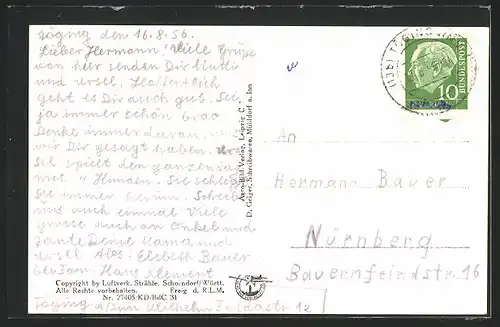 Töging den 16.8.56.
Lieber Hermann! Viele Grüße
von hier senden Dir Mutti
und Ursel. Hoffentlich
geht es Dir auch gut. Sei
ja immer schön brav
Denke immer daran. was
wir Dir gesagt haben. Ursel
sel spielt den ganzen Tag
met " Hunden. Sie schleppt
sie immer herum. Schreib
uns auch einmal Viele
grüsse auch an Onkel und
Tante Deine Mama und
ursel Alles: Elsbeth Bauer
bei Fam. Hans Klement
Töging a/Inn Wilhelm
12
Copyright by Luftverk. Strähle, Schorndorf/Württ.
Alle Rechte vorbehalten. Freig d. R.L.M.
Nr. 27405 KD/BdC 31
Aero-Bild-Verlag, Leipzig C
D. Geiger, Schreibwaren, Mühldorf a. Inn
(13b) TÖGING
DEUTSCHE BUNDESPOST
10
An
Hermann Bauer
Nürnberg
Bauernfeindstr 16